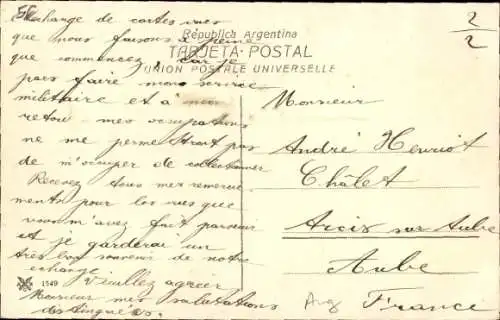 58
échange de cartes vues
que nous faisons à peine
que commencez, car je
pars faire mon service
militaire et à mon
retour mes occupations
ne me permettront pas
de m'occuper de collectionner
Recevez tous mes remercie-
ments pour les vues que
vous m'avez fait parvenir
et je garderai un
très bon souvenir de notre
échange. Veuillez agréer
Monsieur mes salutations
distinguées.
1549
República Argentina
TARJETA POSTAL
UNION POSTALE UNIVERSELLE
2/2
Monsieur
André Henriot
Châlet
Arcis sur Aube
Aube
France